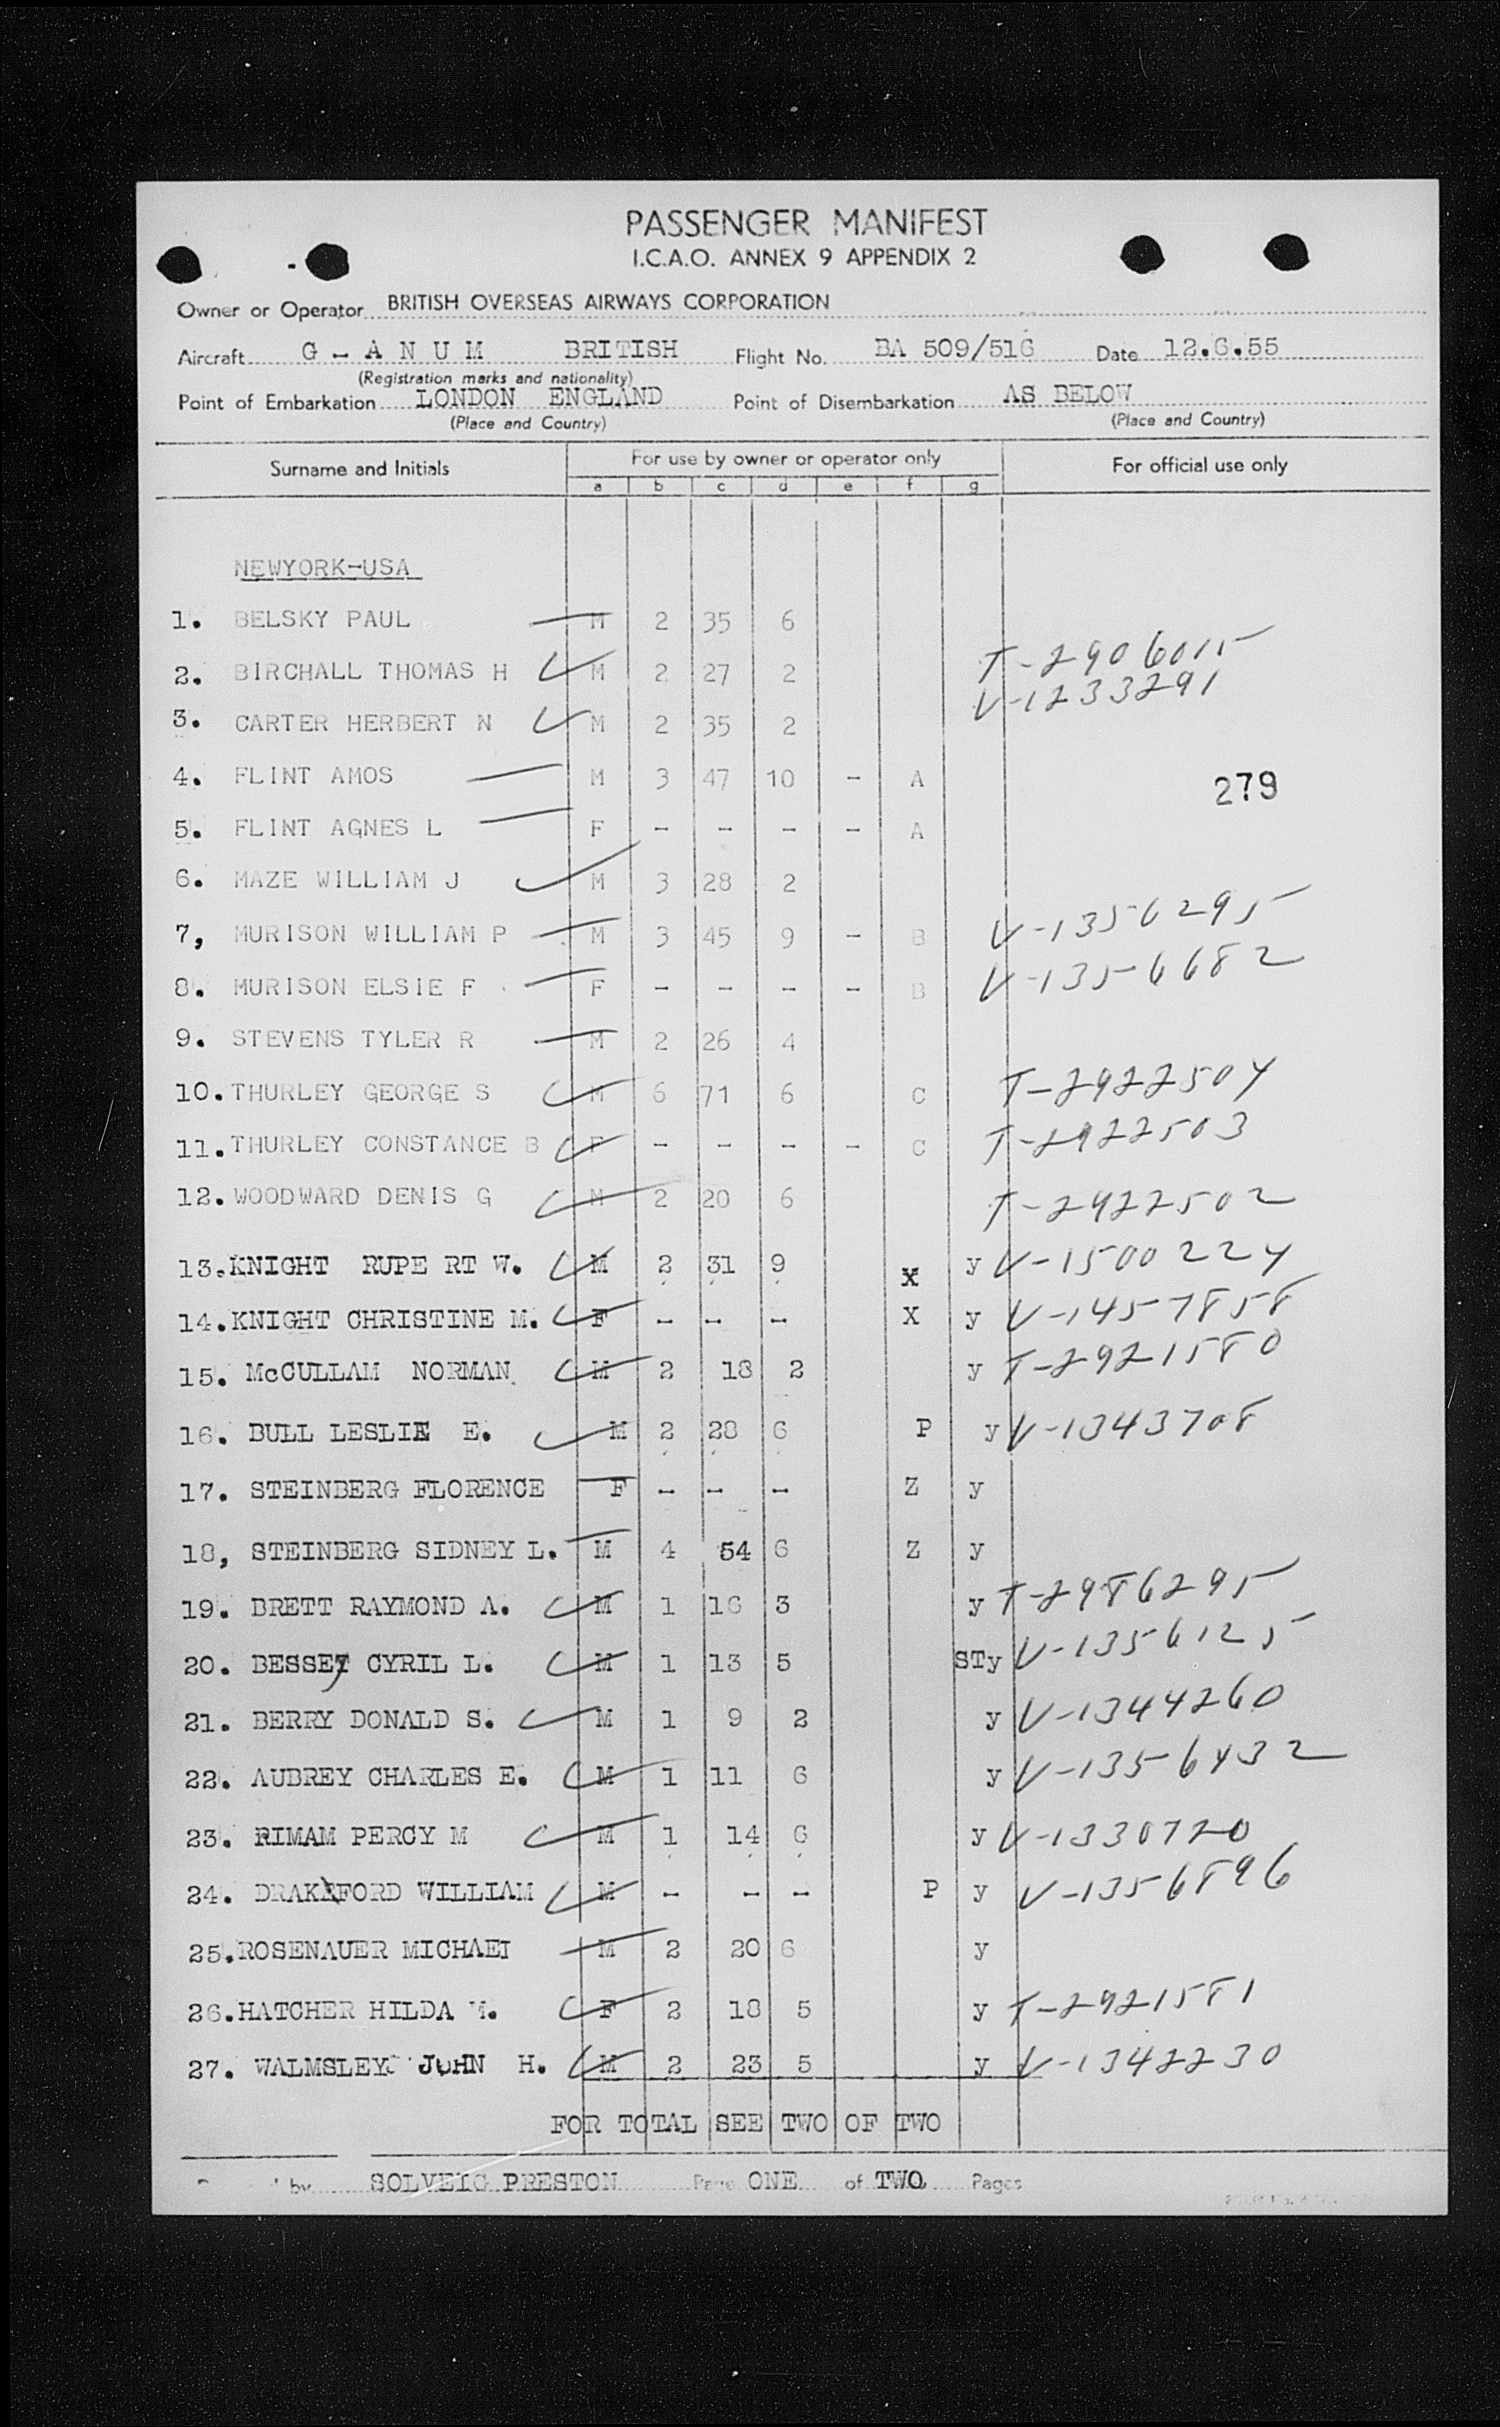 PASSENGER MANIFEST
I.C.A.O. ANNEX 9 APPENDIX 2
Owner or Operator BRITISH OVERSEAS AIRWAYS CORPORATION
Aircraft G - A N U M BRITISH Flight No. BA 509/516 Date 12.6.55
(Registration marks and nationality)
Point of Embarkation LONDON ENGLAND Point of Disembarkation AS BELOW
(Place and Country) (Place and Country)
Surname and Initials For use by owner or operator only For official use only
a b c d e f g
NEWYORK-USA
1. BELSKY PAUL M 2 35 6
2. BIRCHALL THOMAS H M 2 27 2 T-2906015
3. CARTER HERBERT N M 2 35 2 V-1233291
4. FLINT AMOS M 3 47 10 - A 279
5. FLINT AGNES L F - - - - A
6. MAZE WILLIAM J M 3 28 2
7, MURISON WILLIAM P M 3 45 9 - B V-1356295
8. MURISON ELSIE F F - - - - B V-1356682
9. STEVENS TYLER R M 2 26 4
10. THURLEY GEORGE S M 6 71 6 C T-2922504
11. THURLEY CONSTANCE B F - - - - C T-2922503
12. WOODWARD DENIS G M 2 20 6 T-2922502
13. KNIGHT RUPE RT W. M 2 31 9 X y V-1500224
14. KNIGHT CHRISTINE M. F - - - X y V-1457858
15. McCULLAM NORMAN M 2 18 2 y T-2921580
16. BULL LESLIE E. M 2 28 6 P y V-1343708
17. STEINBERG FLORENCE F - - - Z y
18, STEINBERG SIDNEY L. M 4 54 6 Z y
19. BRETT RAYMOND A. M 1 16 3 y T-2986295
20. BESSEY CYRIL L. M 1 13 5 STy V-1356125
21. BERRY DONALD S. M 1 9 2 y V-1344260
22. AUBREY CHARLES E. M 1 11 6 y V-1356432
23. RIMAM PERCY M M 1 14 6 y V-1330720
24. DRAKEFORD WILLIAM M - - - P y V-1356896
25. ROSENAUER MICHAEL M 2 20 6 y
26. HATCHER HILDA M. F 2 18 5 y T-2921581
27. WALMSLEY JOHN H. M 2 23 5 y V-1342230
FOR TOTAL SEE TWO OF TWO
by SOLVEIG PRESTON Page ONE of TWO Pages